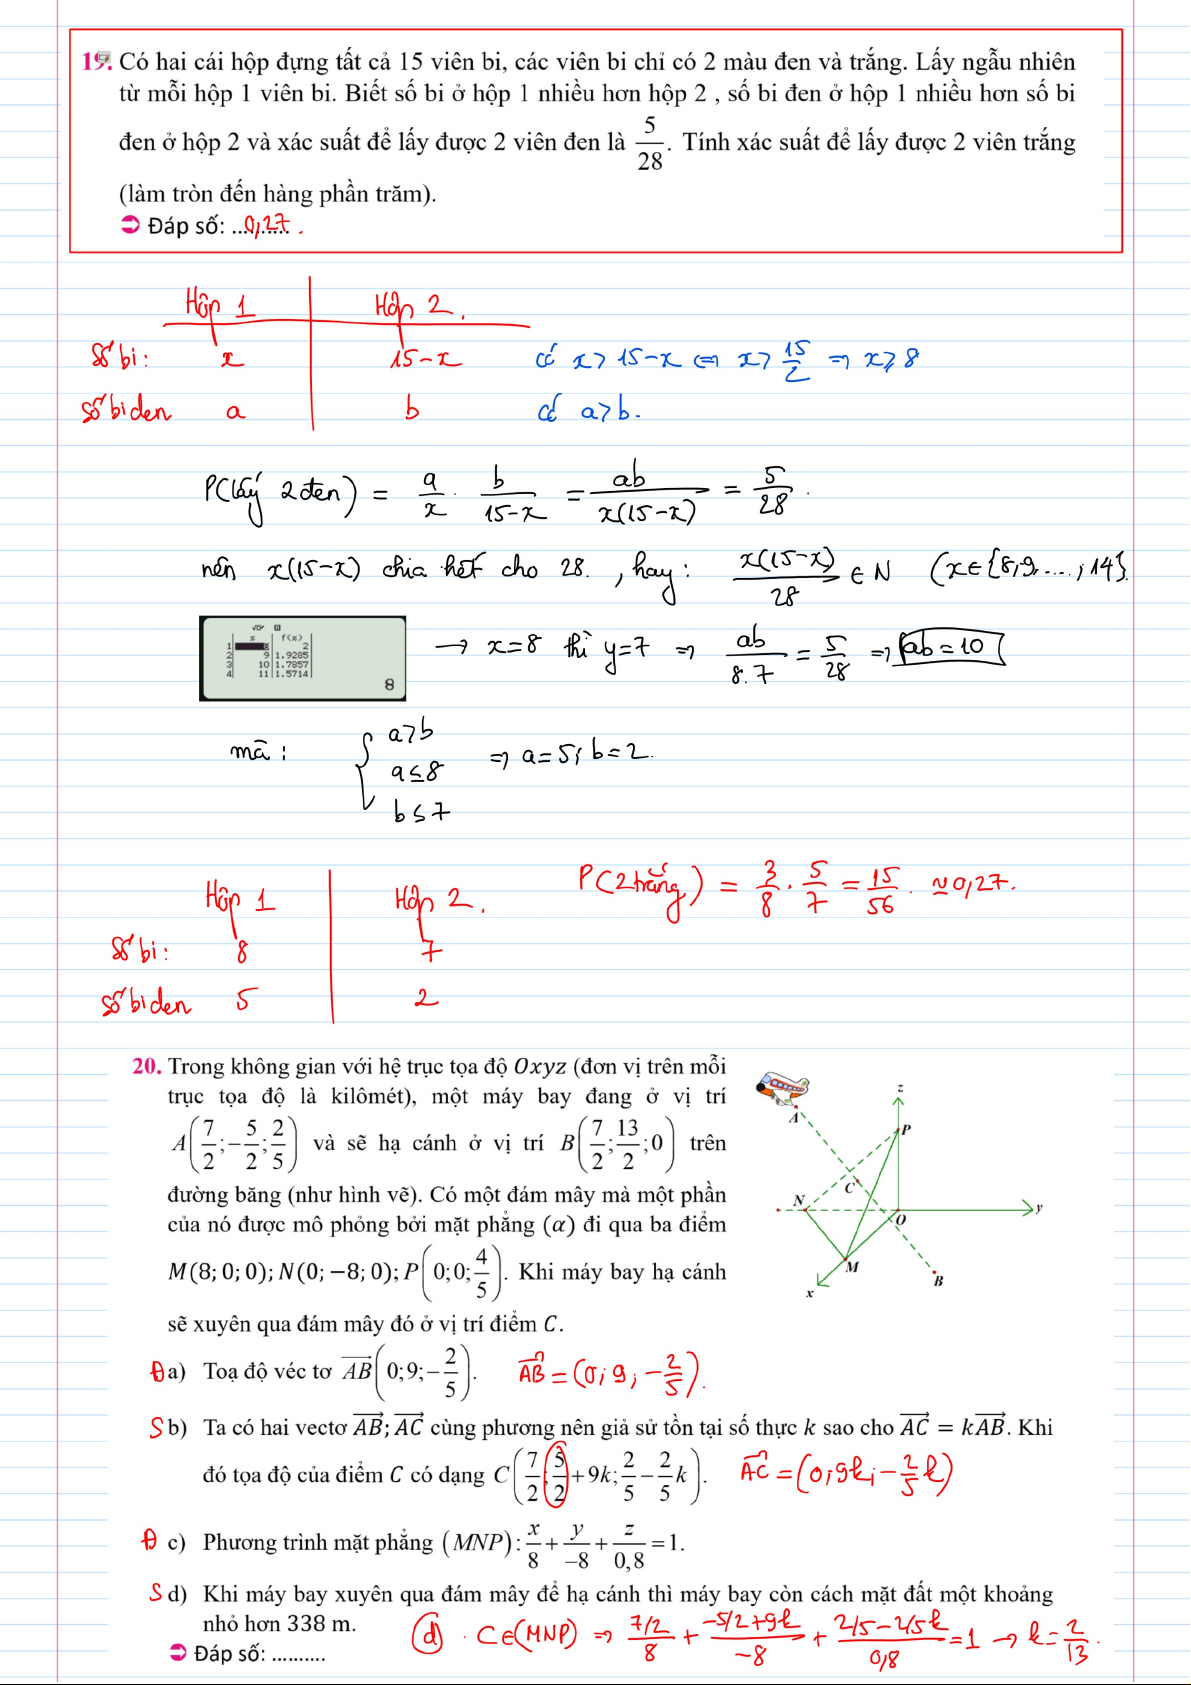 19. Có hai cái hộp đựng tất cả 15 viên bi, các viên bi chỉ có 2 màu đen và trắng. Lấy ngẫu nhiên
từ mỗi hộp 1 viên bi. Biết số bi ở hộp 1 nhiều hơn hộp 2 , số bi đen ở hộp 1 nhiều hơn số bi
đen ở hộp 2 và xác suất để lấy được 2 viên đen là 5/28. Tính xác suất để lấy được 2 viên trắng
(làm tròn đến hàng phần trăm).
➲ Đáp số: ..0,27...
Hộp 1 Hộp 2.
Số bi: x 15-x có x > 15-x ⇔ x > 15/2 ⇒ x ⩾ 8
Số bi đen a b có a>b.
P(lấy 2 đen) = a/x . b/(15-x) = ab/(x(15-x)) = 5/28.
nên x(15-x) chia hết cho 28. , hay: x(15-x)/28 ∈ N (x∈{8,9,....,14}.
x f(x)
1 8 2
2 9 1.9285
3 10 1.7857
4 11 1.5714
8
→ x=8 thì y=7 ⇒ ab/8.7 = 5/28 ⇒ ab = 10
mà : { a>b
a≤8 ⇒ a=5; b=2.
b≤7
P(2 trắng) = 3/8 . 5/7 = 15/56. ≈0,27.
Hộp 1 Hộp 2.
Số bi: 8 7
Số bi đen 5 2
20. Trong không gian với hệ trục tọa độ Oxyz (đơn vị trên mỗi
trục tọa độ là kilômét), một máy bay đang ở vị trí
A(7/2; -5/2; 2/5) và sẽ hạ cánh ở vị trí B(7/2; 13/2; 0) trên
đường băng (như hình vẽ). Có một đám mây mà một phần
của nó được mô phỏng bởi mặt phẳng (α) đi qua ba điểm
M(8; 0; 0); N(0; −8; 0); P(0; 0; 4/5). Khi máy bay hạ cánh
sẽ xuyên qua đám mây đó ở vị trí điểm C.
z
A
P
C
N
O
y
M
x
B
Đ a) Toạ độ véc tơ AB→(0; 9; -2/5). AB→ = (0; 9; -2/5).
S b) Ta có hai vectơ AB→; AC→ cùng phương nên giả sử tồn tại số thực k sao cho AC→ = kAB→. Khi
đó tọa độ của điểm C có dạng C(7/2; 5/2 + 9k; 2/5 - 2/5 k). AC→ = (0; 9k; -2/5 k)
Đ c) Phương trình mặt phẳng (MNP): x/8 + y/-8 + z/0,8 = 1.
S d) Khi máy bay xuyên qua đám mây để hạ cánh thì máy bay còn cách mặt đất một khoảng
nhỏ hơn 338 m.
d . C∈(MNP) ⇒ (7/2)/8 + (-5/2+9k)/-8 + (2/5-2/5k)/0,8 = 1 → k = 2/13.
➲ Đáp số: ..........